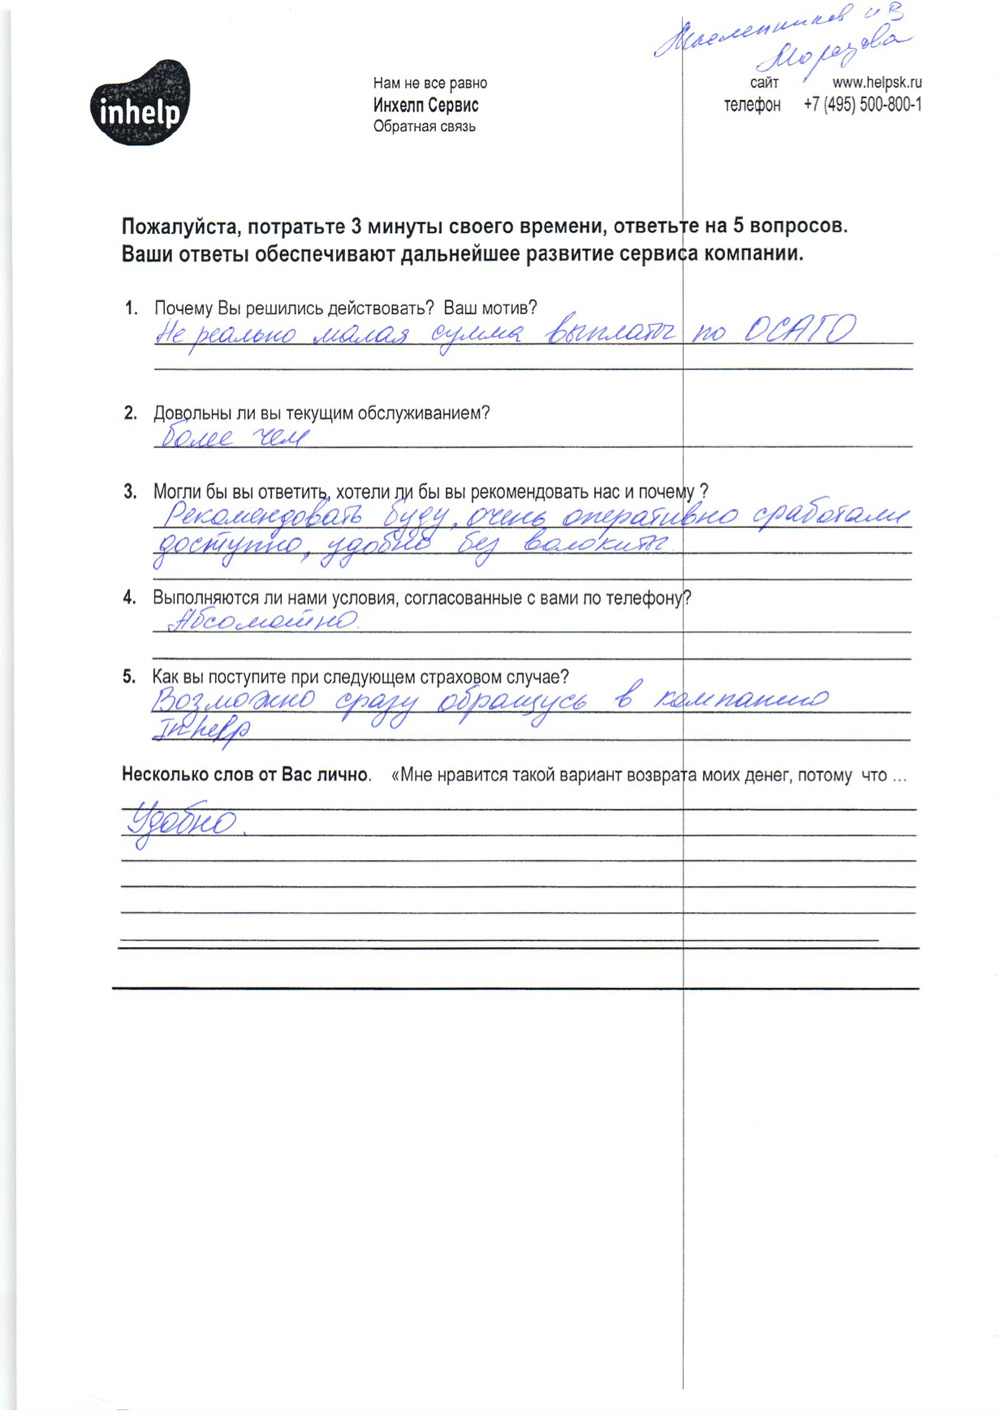 Масленников И В
Морозова
inhelp
Нам не все равно
Инхелп Сервис
Обратная связь
сайт www.helpsk.ru
телефон +7 (495) 500-800-1
Пожалуйста, потратьте 3 минуты своего времени, ответьте на 5 вопросов.
Ваши ответы обеспечивают дальнейшее развитие сервиса компании.
1. Почему Вы решились действовать? Ваш мотив?
Не реально малая сумма выплаты по ОСАГО
2. Довольны ли вы текущим обслуживанием?
более чем
3. Могли бы вы ответить, хотели ли бы вы рекомендовать нас и почему ?
Рекомендовать буду, очень оперативно сработали
доступно, удобно без волокиты
4. Выполняются ли нами условия, согласованные с вами по телефону?
Абсолютно.
5. Как вы поступите при следующем страховом случае?
Возможно сразу обращусь в компанию
Inhelp
Несколько слов от Вас лично. «Мне нравится такой вариант возврата моих денег, потому что ...
Удобно.